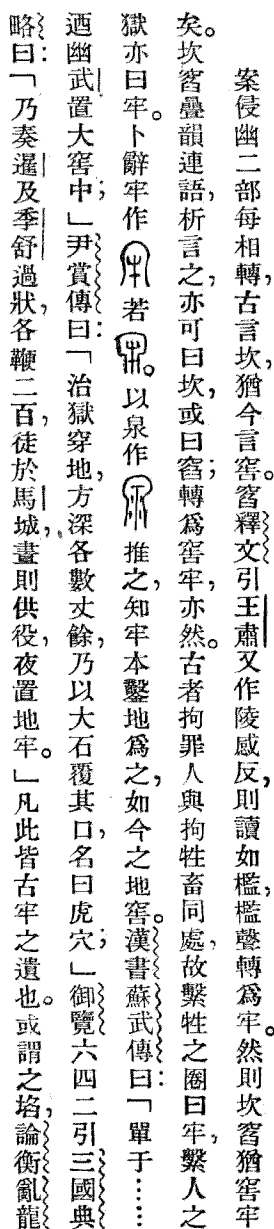 案侵幽二部每相轉，古言坎，猶今言窖。窞釋文引王肅又作陵感反，則讀如檻，檻聲轉爲牢。然則坎窞猶窖牢
矣。坎窞疊韻連語，析言之，亦可曰坎，或曰窞；轉爲窖牢，亦然。古者拘罪人與拘牲畜同處，故繫牲之圈曰牢，繫人之
獄亦曰牢。卜辭牢作若。以泉作推之，知牢本鑿地爲之，如今之地窖。漢書蘇武傳曰：「單于……
迺幽武置大窖中；」尹賞傳曰：「治獄穿地，方深各數丈餘，乃以大石覆其口，名曰虎穴；」御覽六四二引三國典
略曰：「乃奏暹及季舒過狀，各鞭二百，徒於馬城，晝則供役，夜置地牢。」凡此皆古牢之遺也。或謂之㘿，論衡亂龍